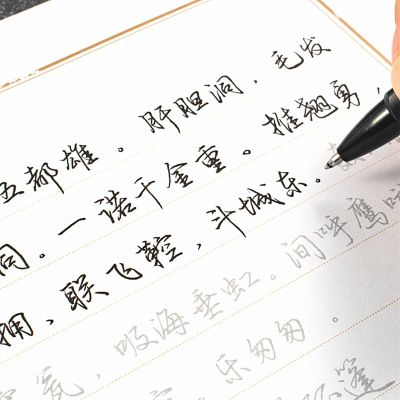 五都雄。肝胆洞，毛发
同。一诺千金重。推翘勇，
拥，联飞鞚，斗城东。
瓮，吸海垂虹。间呼鹰
乐匆匆。
篷